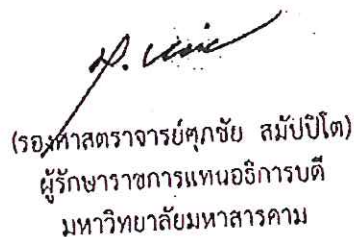 (รองศาสตราจารย์ศุภชัย สมัปปิโต)
ผู้รักษาราชการแทนอธิการบดี
มหาวิทยาลัยมหาสารคาม